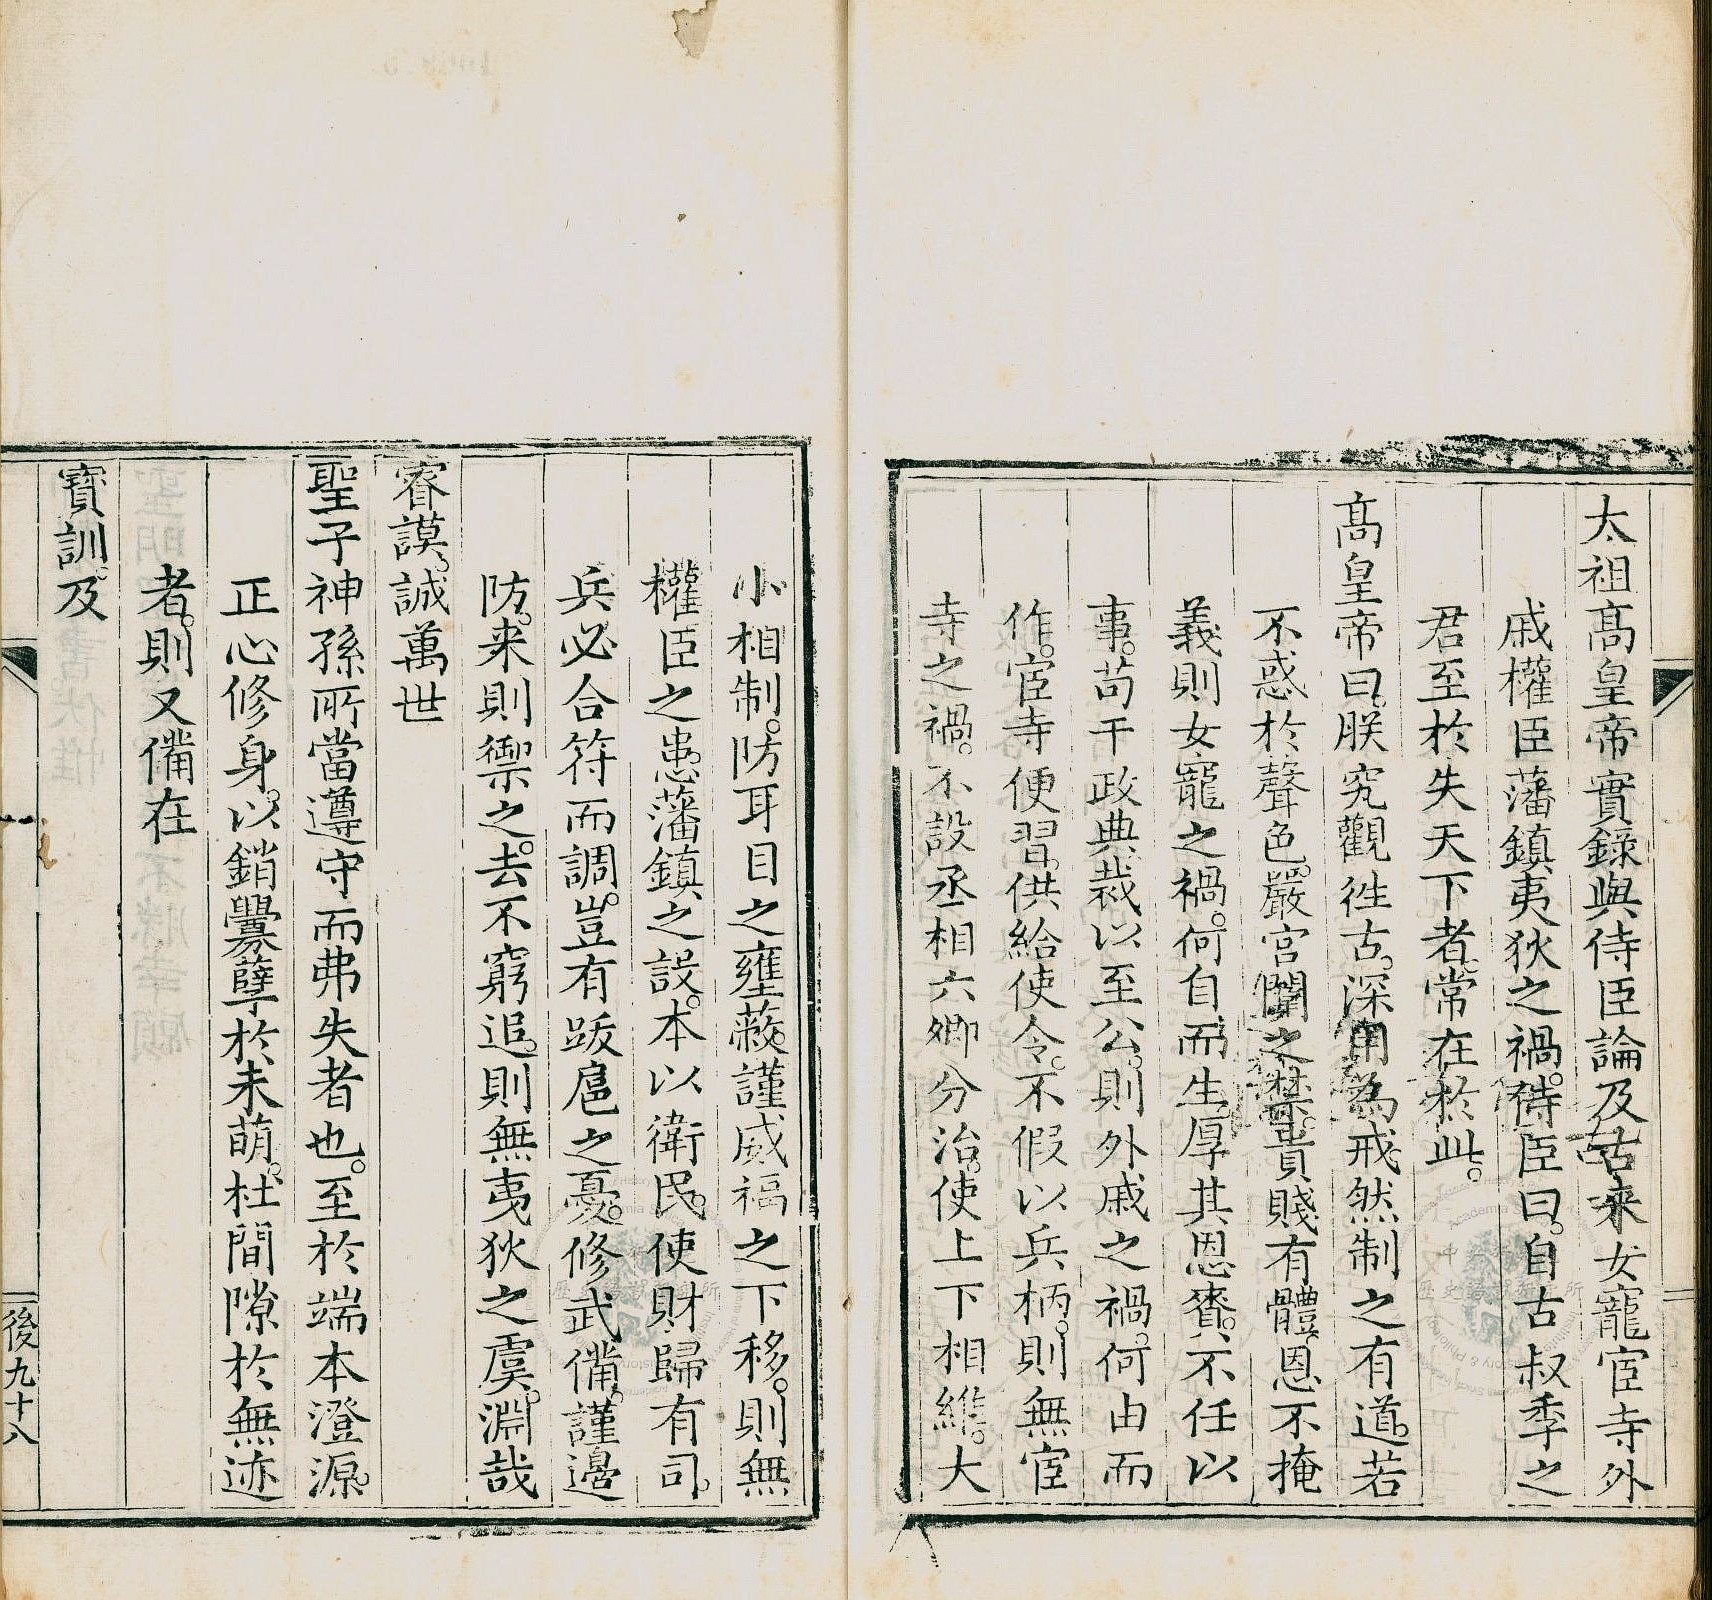 太祖髙皇帝實錄與侍臣論及古来女寵宦寺外
戚權臣藩鎮夷狄之禍侍臣曰自古叔季之
君至於失天下者常在於此
髙皇帝曰朕究觀徃古深用為戒然制之有道若
不惑於聲色嚴宮闈之禁貴賤有體恩不掩
義則女寵之禍何自而生厚其恩賚不任以
事苟干政典裁以至公則外戚之禍何由而
作宦寺便習供給使令不假以兵柄則無宦
寺之禍不設丞相六卿分治使上下相維大
小相制防耳目之壅蔽謹威福之下移則無
權臣之患藩鎮之設本以衛民使財歸有司
兵必合符而調豈有跋扈之憂修武備謹邊
防来則禦之去不窮追則無夷狄之虞淵哉
睿謨誠萬世
聖子神孫所當遵守而弗失者也至於端本澄源
正心修身以銷釁孽於未萌杜間隙於無迹
者則又備在
寶訓及
後九十八